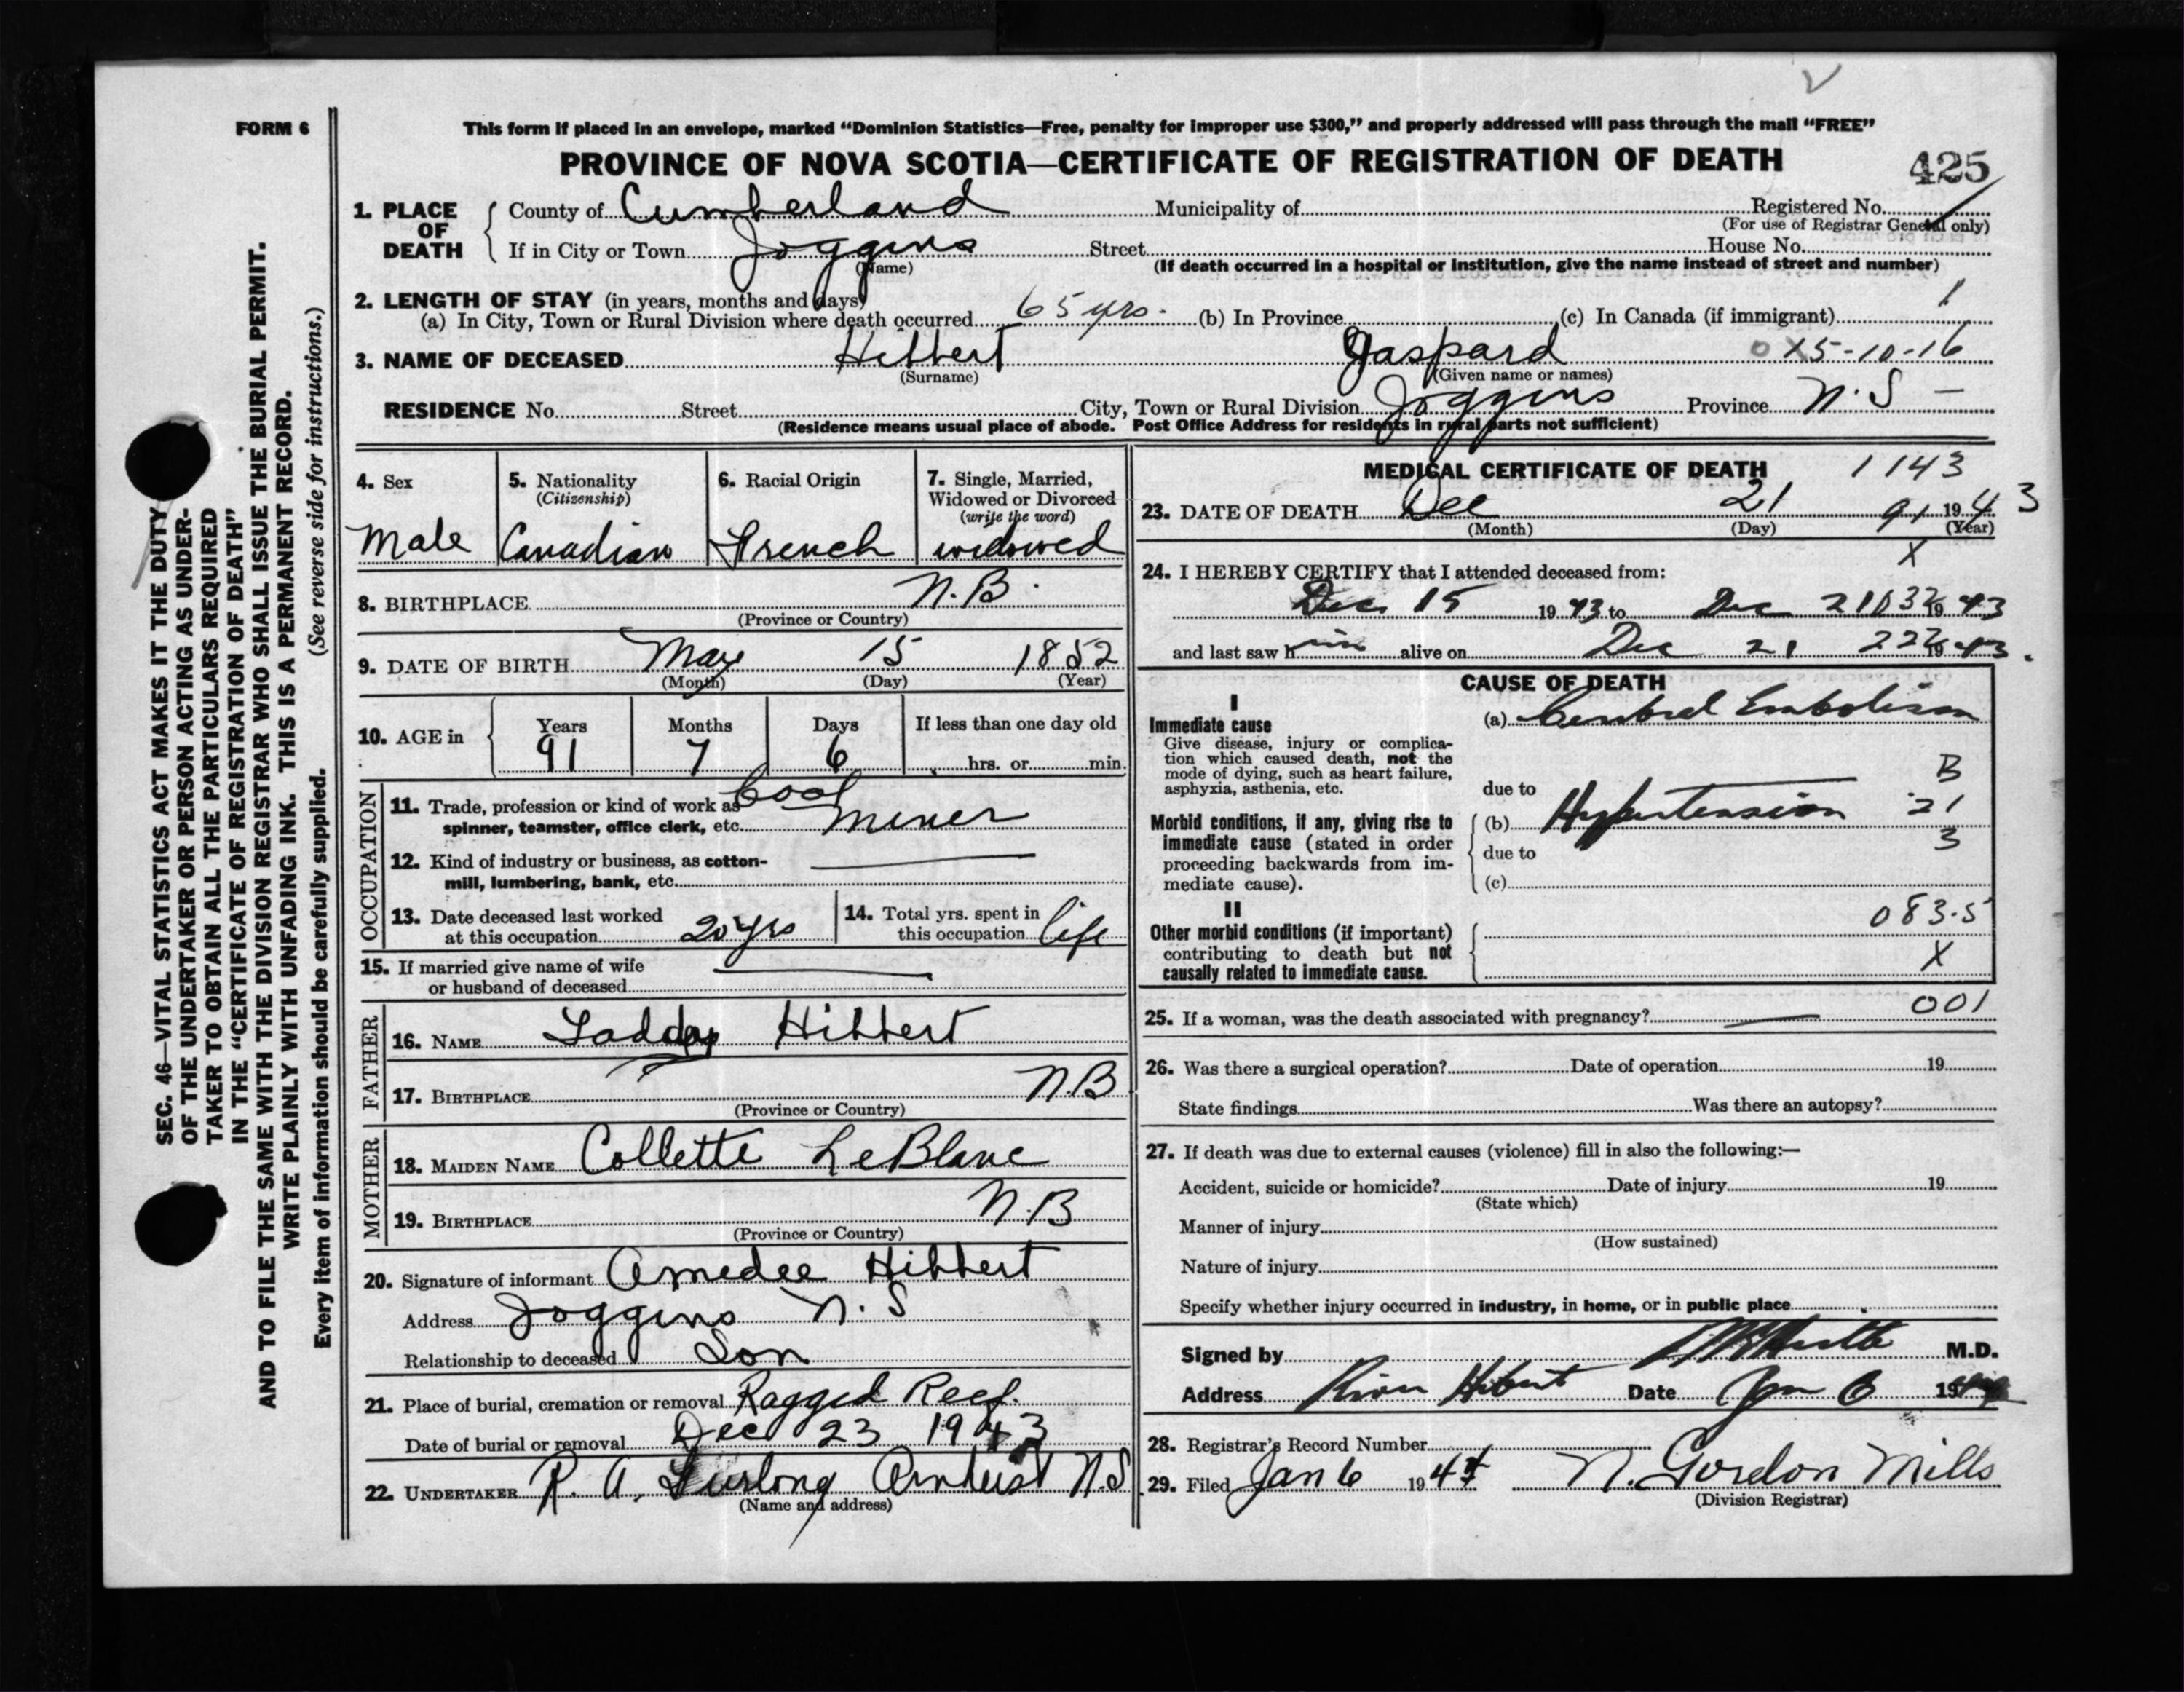 FORM 6
This form if placed in an envelope, marked “Dominion Statistics—Free, penalty for improper use $300,” and properly addressed will pass through the mail “FREE”
PROVINCE OF NOVA SCOTIA—CERTIFICATE OF REGISTRATION OF DEATH
425
1. PLACE OF DEATH
County of Cumberland Municipality of Registered No.
(For use of Registrar General only)
If in City or Town Joggins Street House No.
(Name) (If death occurred in a hospital or institution, give the name instead of street and number)
2. LENGTH OF STAY (in years, months and days)
(a) In City, Town or Rural Division where death occurred 65 yrs. (b) In Province (c) In Canada (if immigrant) 1
3. NAME OF DECEASED Hibbert Gaspard 0 X5-10-16
(Surname) (Given name or names)
RESIDENCE No. Street City, Town or Rural Division Joggins Province N.S —
(Residence means usual place of abode. Post Office Address for residents in rural parts not sufficient)
4. Sex
Male
5. Nationality
(Citizenship)
Canadian
6. Racial Origin
French
7. Single, Married,
Widowed or Divorced
(write the word)
widowed
8. BIRTHPLACE N.B.
(Province or Country)
9. DATE OF BIRTH May 15 1852
(Month) (Day) (Year)
10. AGE in
Years Months Days If less than one day old
91 7 6 hrs. or min.
OCCUPATION
11. Trade, profession or kind of work as Coal
spinner, teamster, office clerk, etc. Miner
12. Kind of industry or business, as cotton-
mill, lumbering, bank, etc.
13. Date deceased last worked
at this occupation 20 yrs
14. Total yrs. spent in
this occupation life
15. If married give name of wife
or husband of deceased
FATHER
16. NAME Hibbert
17. BIRTHPLACE N.B
(Province or Country)
MOTHER
18. MAIDEN NAME Collette LeBlanc
19. BIRTHPLACE N.B
(Province or Country)
20. Signature of informant Amedee Hibbert
Address Joggins N.S
Relationship to deceased Son
21. Place of burial, cremation or removal Ragged Reef.
Date of burial or removal Dec 23 1943
22. UNDERTAKER R. A. Furlong Amherst N.S
(Name and address)
MEDICAL CERTIFICATE OF DEATH 1143
23. DATE OF DEATH Dec 21 91 1943
(Month) (Day) (Year)
X
24. I HEREBY CERTIFY that I attended deceased from:
Dec 15 1943 to Dec 21 032 1943
and last saw him alive on Dec 21 222 1943.
CAUSE OF DEATH
I
Immediate cause
Give disease, injury or complica-
tion which caused death, not the
mode of dying, such as heart failure,
asphyxia, asthenia, etc.
(a) Cerebral Embolism
B
due to
Morbid conditions, if any, giving rise to
immediate cause (stated in order
proceeding backwards from im-
mediate cause).
(b) Hypertension 21
due to 3
(c)
II
Other morbid conditions (if important)
contributing to death but not
causally related to immediate cause.
083.5
X
25. If a woman, was the death associated with pregnancy? — 001
26. Was there a surgical operation? Date of operation 19
State findings Was there an autopsy?
27. If death was due to external causes (violence) fill in also the following:—
Accident, suicide or homicide? Date of injury 19
(State which)
Manner of injury
(How sustained)
Nature of injury
Specify whether injury occurred in industry, in home, or in public place
Signed by M.D.
Address River Hebert Date Jan 6 19
28. Registrar's Record Number
29. Filed Jan 6 1944 N. Gordon Mills
(Division Registrar)
SEC. 46—VITAL STATISTICS ACT MAKES IT THE DUTY
OF THE UNDERTAKER OR PERSON ACTING AS UNDER-
TAKER TO OBTAIN ALL THE PARTICULARS REQUIRED
IN THE “CERTIFICATE OF REGISTRATION OF DEATH”
AND TO FILE THE SAME WITH THE DIVISION REGISTRAR WHO SHALL ISSUE THE BURIAL PERMIT.
WRITE PLAINLY WITH UNFADING INK. THIS IS A PERMANENT RECORD.
Every item of information should be carefully supplied. (See reverse side for instructions.)